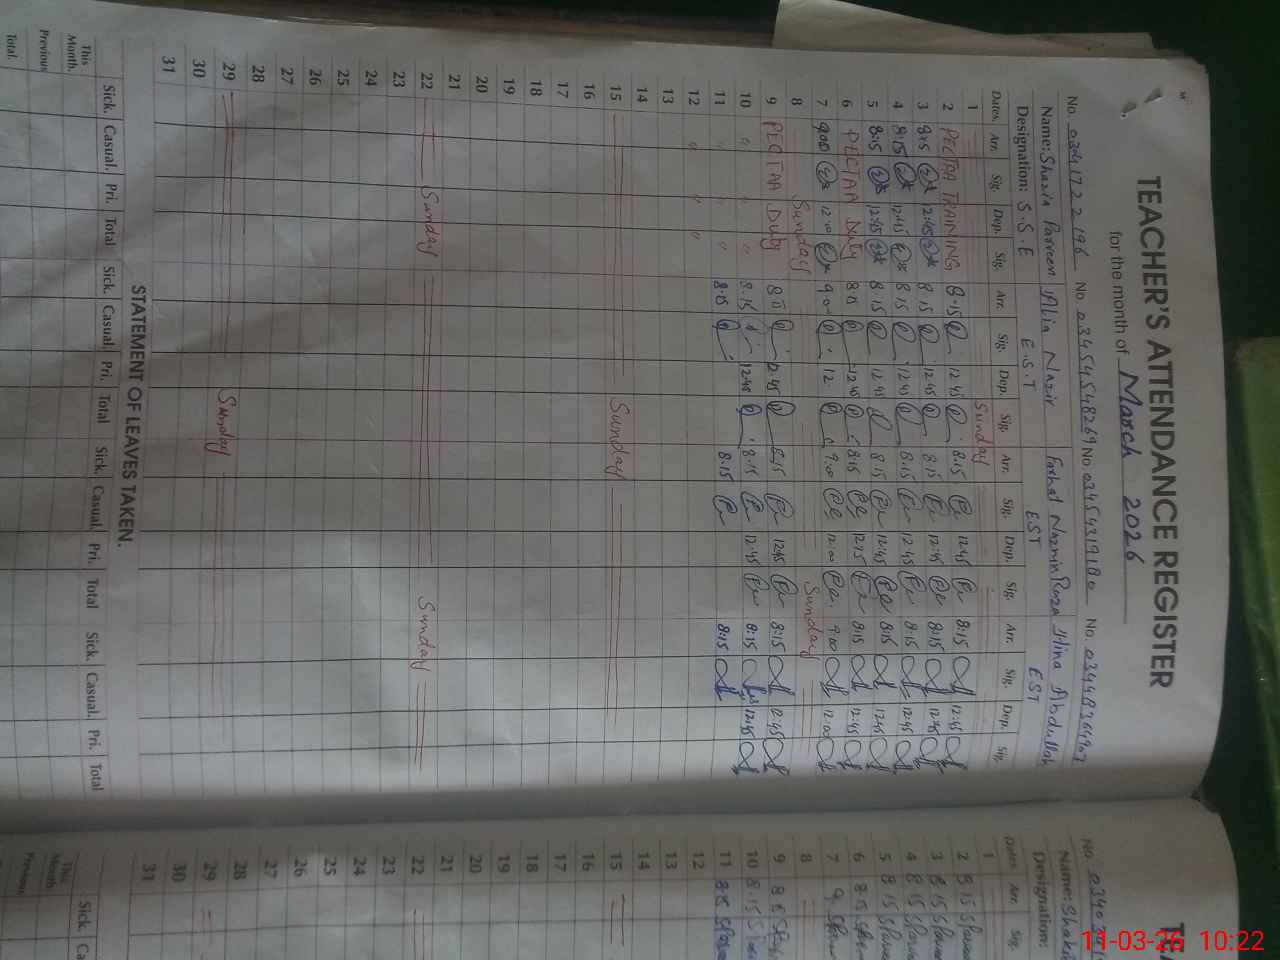 TEACHER'S ATTENDANCE REGISTER
for the month of March 2026
No. 03417222196 No. 03454548269 No. 03454319180 No. 03448364907
Name: Shazia Parveen Alia Nazir Farhat Nazmin Raza Hina Abdullah
Designation: S.S.E E.S.T EST EST
Dates. Arr. Sig. Dep. Sig. Arr. Sig. Dep. Sig. Arr. Sig. Dep. Sig. Arr. Sig. Dep. Sig.
1 Sunday
2 PECTAA TRAINING 8.15 12.45 8.15 12.45 8:15 12:45
3 8:15 12:45 8 15 12.45 8.15 12:45 8:15 12:45
4 8:15 12:45 8 15 12.45 8.15 12.45 8.15 12:45
5 8:15 12:45 8 15 12 45 8 15 12:45 8:15 12:45
6 PECTAA Duty 8.15 12.45 8:15 12:15 8:15 12:45
7 9:00 12:00 9.00 12 9:00 12:00 9.00 12:00
8 Sunday Sunday
9 PECTAA Duty 8.15 12.45 8.15 12:45 8:15 12:45
10 " " " " 8.15 12.45 8.15 12.45 8:15 12:45
11 " " " " 8.15 8.15 8:15
12 " " "
13
14
15 Sunday
16
17
18
19
20
21
22 Sunday Sunday
23
24
25
26
27
28
29 Sunday
30
31
STATEMENT OF LEAVES TAKEN.
Sick. Casual. Pri. Total Sick. Casual. Pri. Total Sick. Casual. Pri. Total Sick. Casual. Pri. Total
This Month.
Previous
Total.
No. 0340
Name: Shak
Designation:
Dates. Arr. Sig.
1
2 8 15
3 8 15
4 8 15
5 8 15
6 8 15
7 9
8
9 8 15
10 8.15
11 8.15
12
13
14
15
16
17
18
19
20
21
22
23
24
25
26
27
28
29
30
31
Sick. Ca
This Month
Previous
11-03-26 10:22